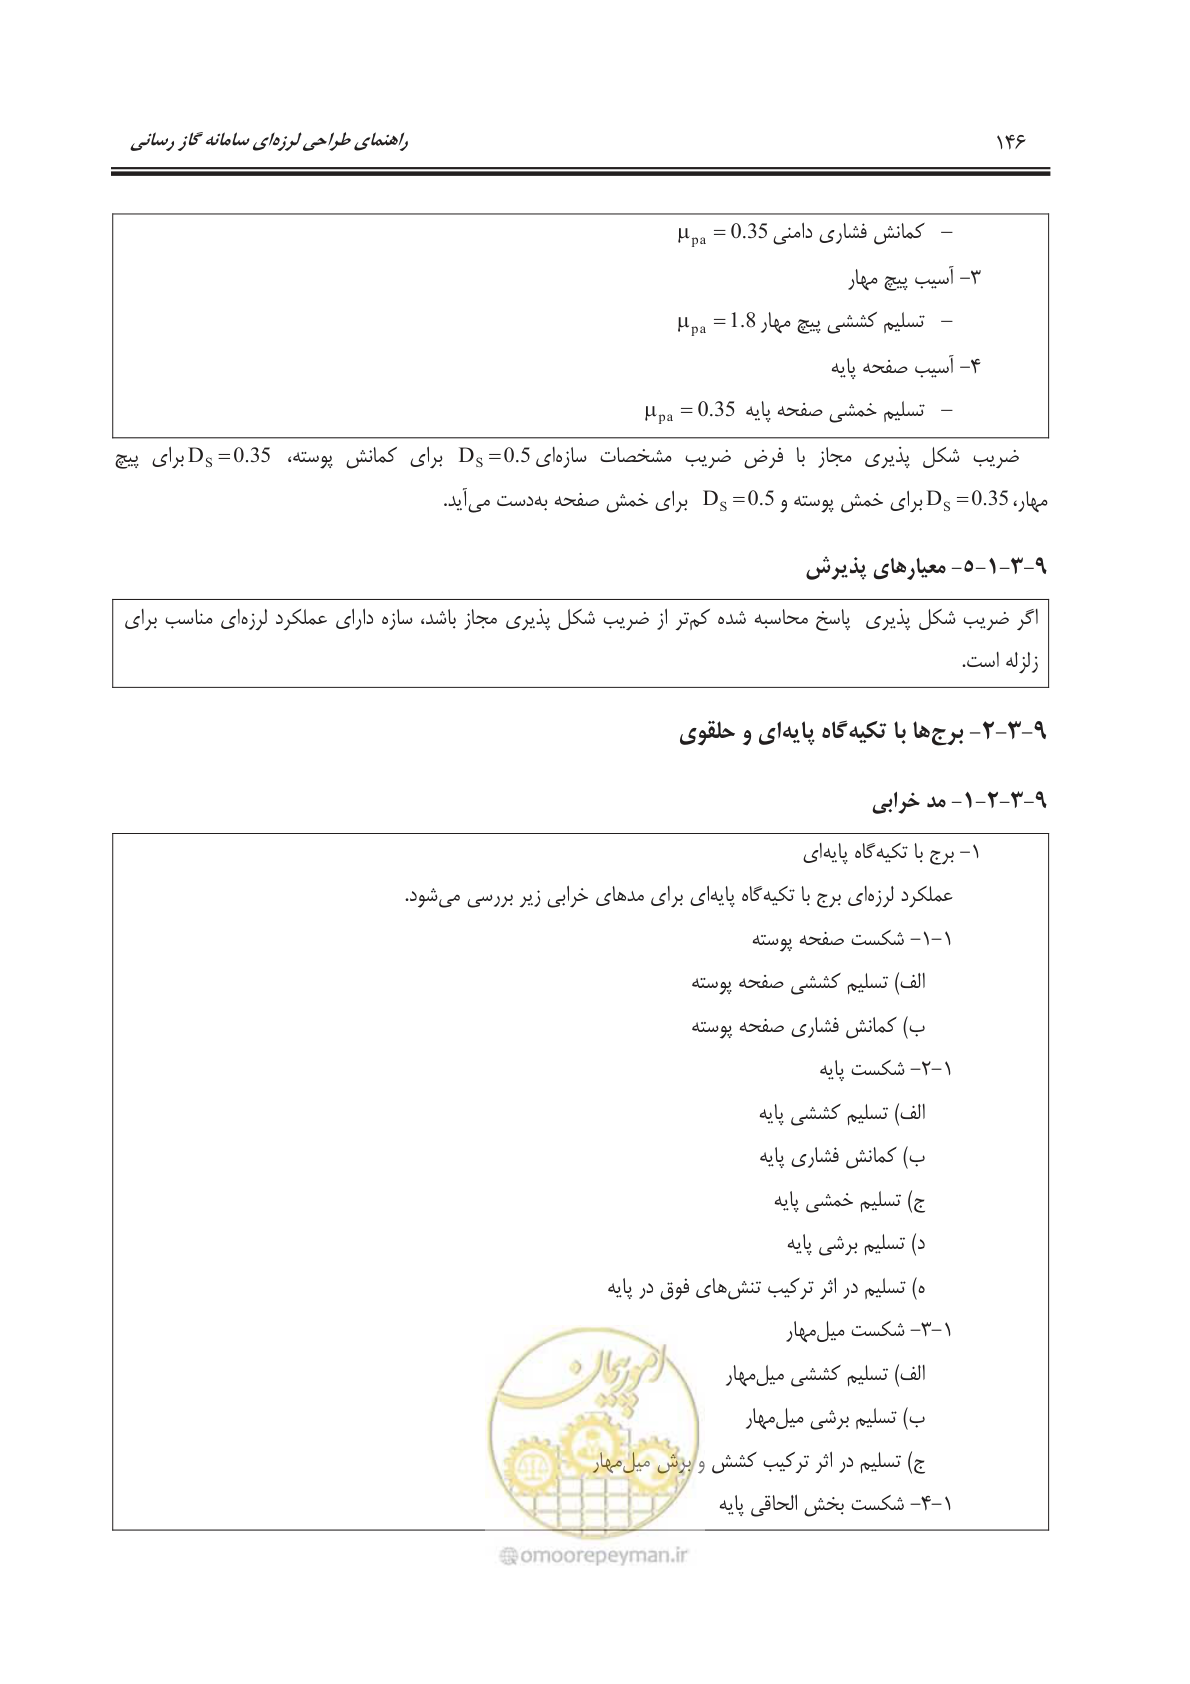 ۱۴۶
راهنمای طراحی لرزه‌ای سامانه گاز رسانی
– کمانش فشاری دامنی μpa = 0.35
۳- آسیب پیچ مهار
– تسلیم کششی پیچ مهار μpa = 1.8
۴- آسیب صفحه پایه
– تسلیم خمشی صفحه پایه μpa = 0.35
ضریب شکل پذیری مجاز با فرض ضریب مشخصات سازه‌ای DS = 0.5 برای کمانش پوسته، DS = 0.35 برای پیچ
مهار، DS = 0.35 برای خمش پوسته و DS = 0.5 برای خمش صفحه به‌دست می‌آید.
۹-۳-۱-۵- معیارهای پذیرش
اگر ضریب شکل پذیری پاسخ محاسبه شده کم‌تر از ضریب شکل پذیری مجاز باشد، سازه دارای عملکرد لرزه‌ای مناسب برای
زلزله است.
۹-۳-۲- برج‌ها با تکیه‌گاه پایه‌ای و حلقوی
۹-۳-۲-۱- مد خرابی
۱- برج با تکیه‌گاه پایه‌ای
عملکرد لرزه‌ای برج با تکیه‌گاه پایه‌ای برای مدهای خرابی زیر بررسی می‌شود.
۱-۱- شکست صفحه پوسته
الف) تسلیم کششی صفحه پوسته
ب) کمانش فشاری صفحه پوسته
۱-۲- شکست پایه
الف) تسلیم کششی پایه
ب) کمانش فشاری پایه
ج) تسلیم خمشی پایه
د) تسلیم برشی پایه
ه) تسلیم در اثر ترکیب تنش‌های فوق در پایه
۱-۳- شکست میل‌مهار
الف) تسلیم کششی میل‌مهار
ب) تسلیم برشی میل‌مهار
ج) تسلیم در اثر ترکیب کشش و برش میل‌مهار
۱-۴- شکست بخش الحاقی پایه
امور پیمان
@omoorepeyman.ir